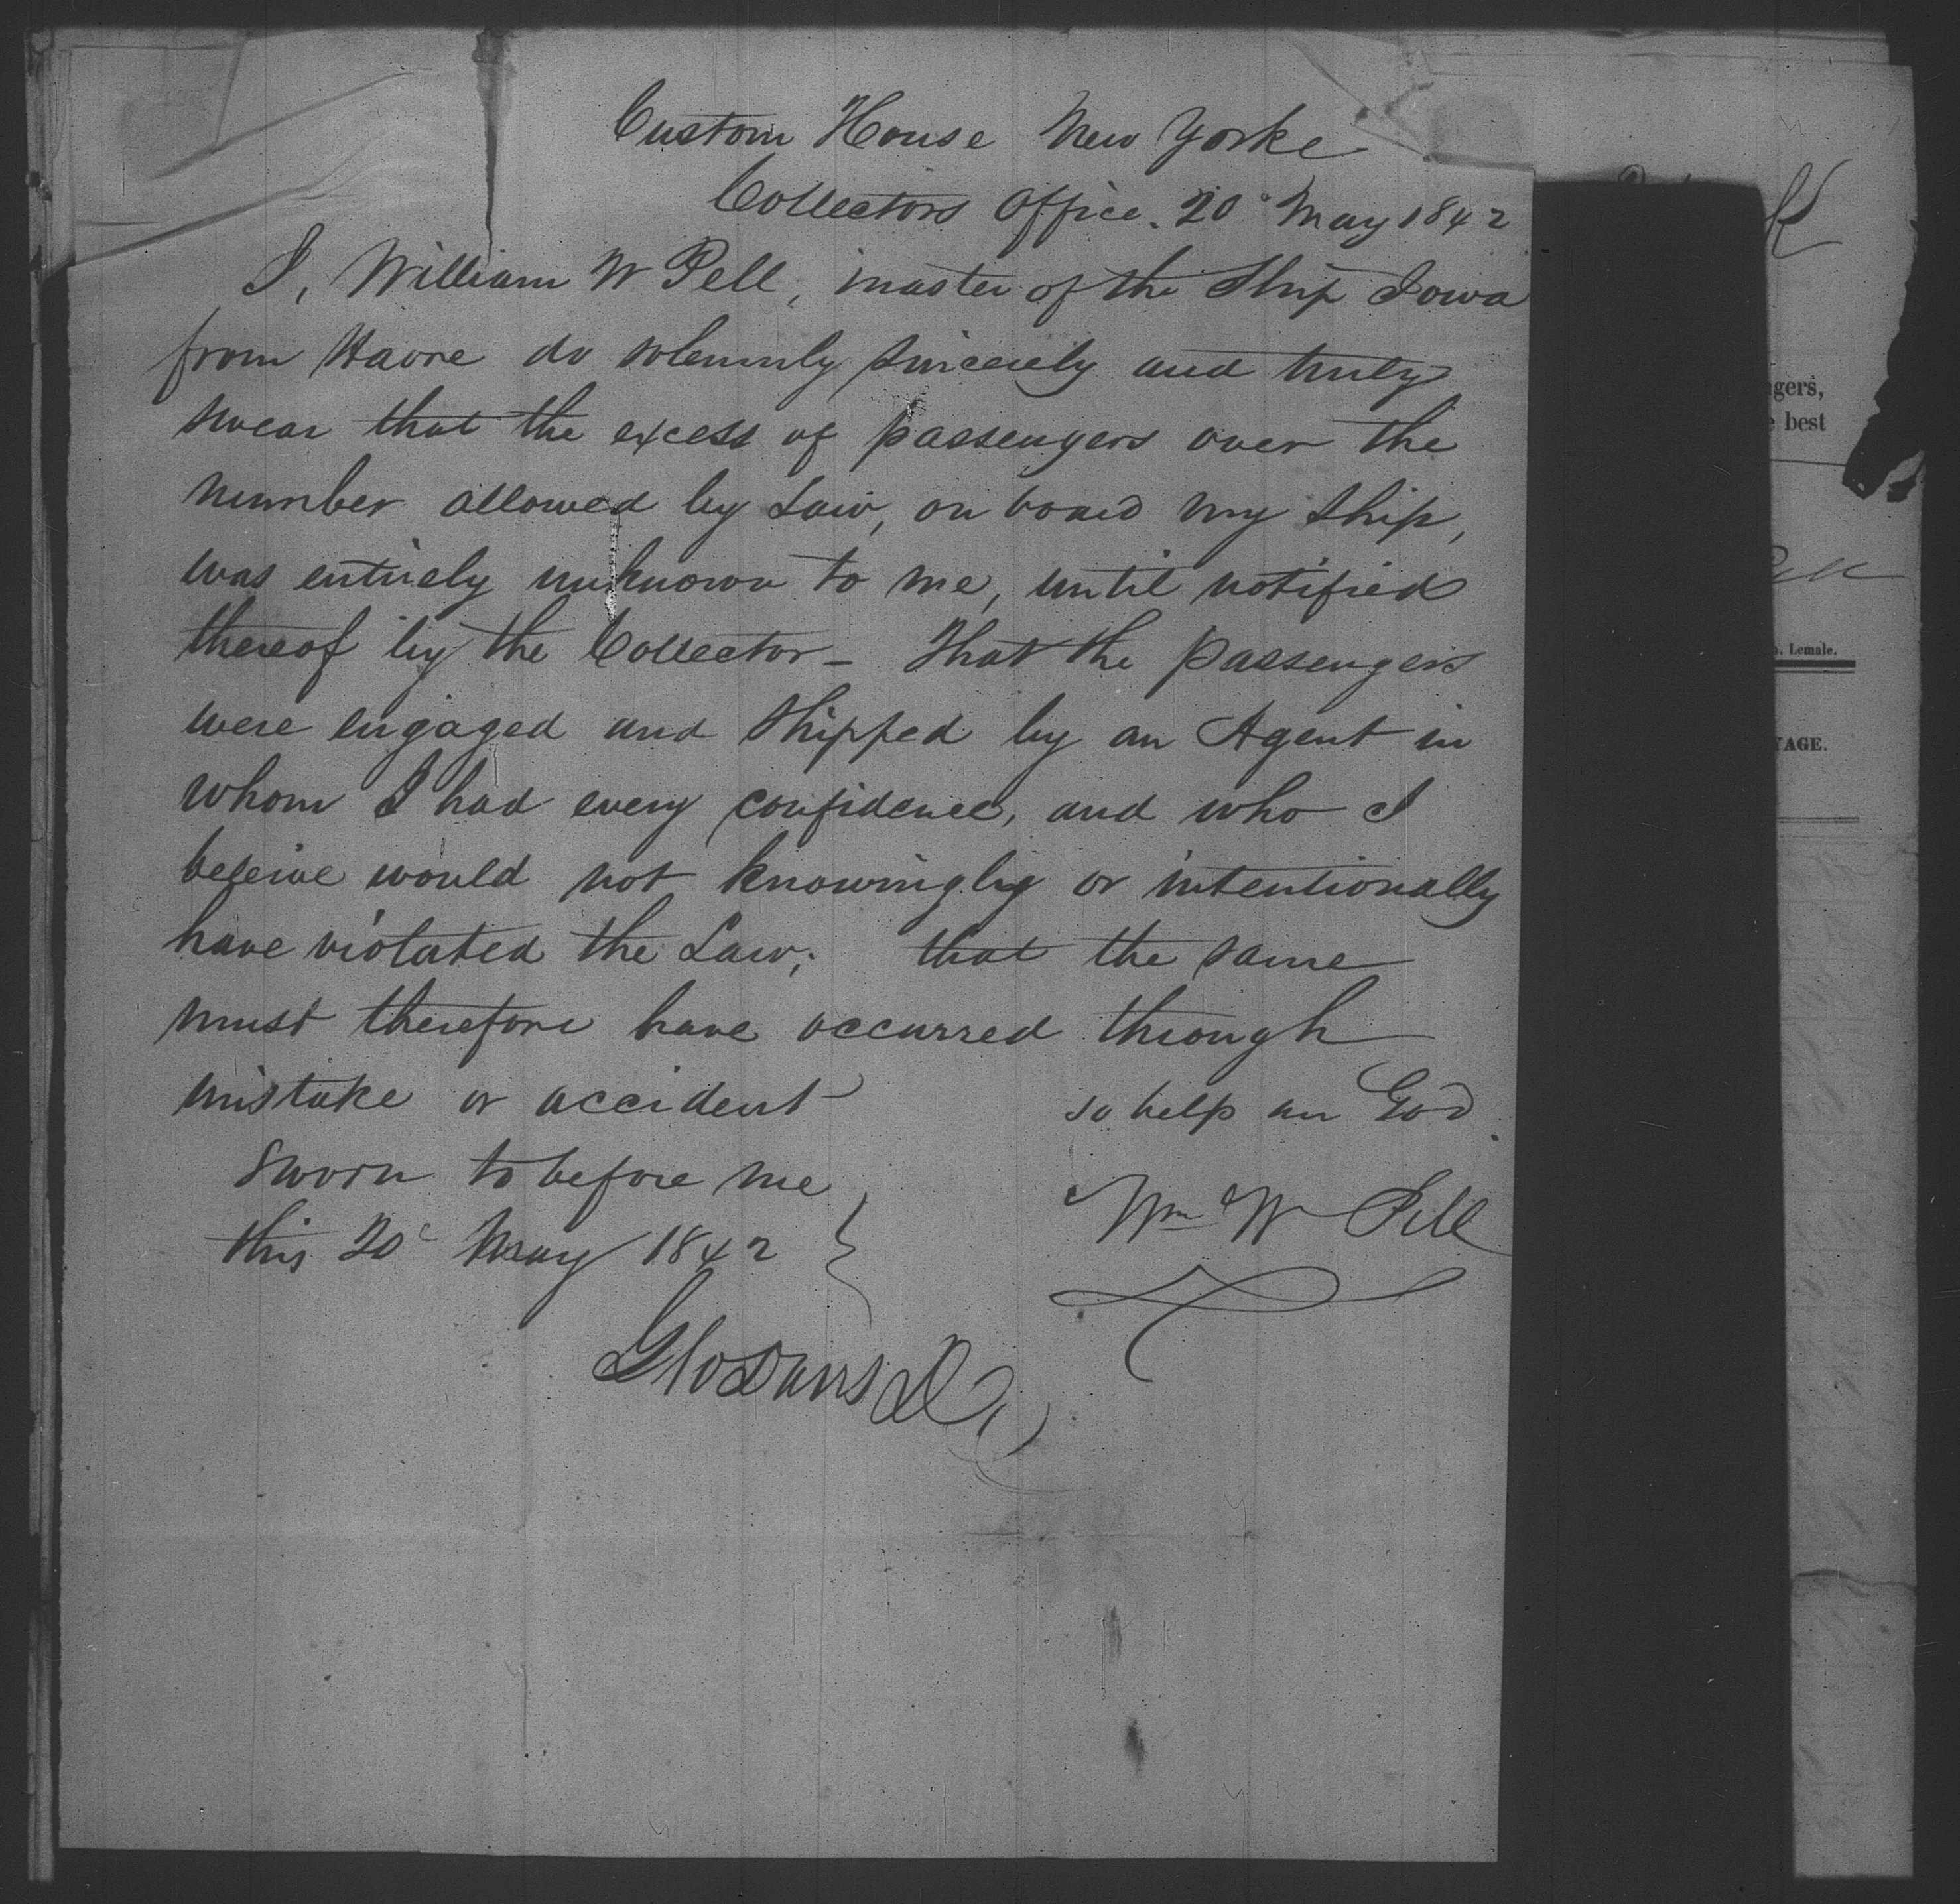 Custom House New Yorke
Collectors Office. 20 May 1842
I, William W Pell, master of the Ship Iowa
from Havre do solemnly sincerely and truly
swear that the excess of passengers over the
number allowed by Law, on board my ship,
was entirely unknown to me, until notified
thereof by the Collector - That the passengers
were engaged and shipped by an Agent in
whom I had every confidence, and who I
beleive would not knowingly or intentionally
have violated the Law; that the same
must therefore have occurred through
mistake or accident so help me God.
Sworn to before me
this 20 May 1842
Wm W Pell
Geo Davis
gers,
best
Lemale.
AGE.